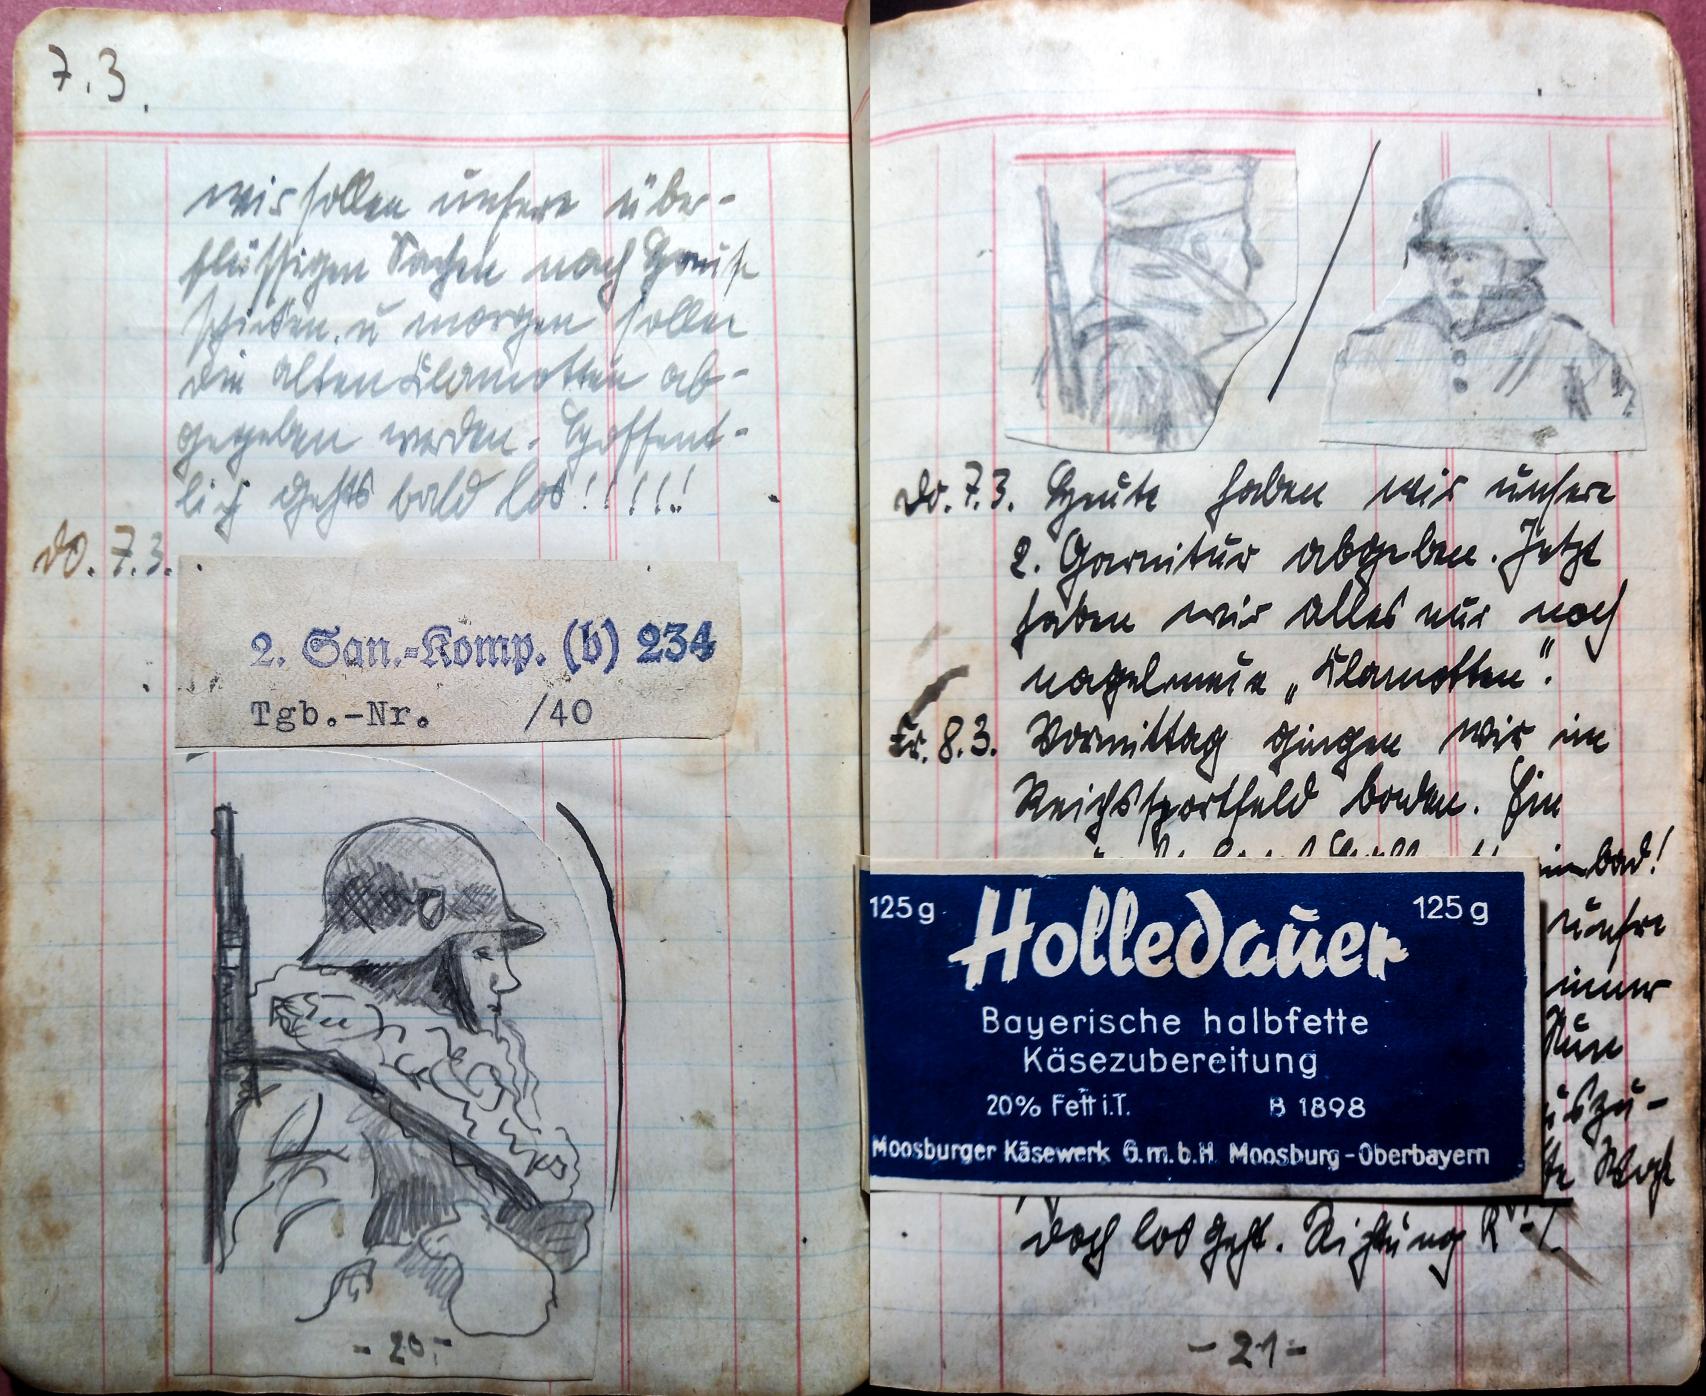 7.3.
wir sollen unsere über-
flüssigen Sachen nach Hause
schicken. u morgen sollen
die alten Klamotten ab-
gegeben werden. Hoffent-
lich gehts bald los!!!!!
Do. 7.3.
2. San.-Komp. (b) 234
Tgb.-Nr. /40
- 20 -
Do. 7.3. Heute haben wir unsere
2. Garnitur abgeben. Jetzt
haben wir alles nur noch
nagelneue „Klamotten".
Fr. 8.3. Vormittag gingen wir im
Reichssportfeld baden. Ein
bad!
unsre
immer
Nun
szu-
doch los geht. Richtung
125g Holledauer 125g
Bayerische halbfette
Käsezubereitung
20% Fett i.T. B 1898
Moosburger Käsewerk G.m.b.H. Moosburg-Oberbayern
- 21 -